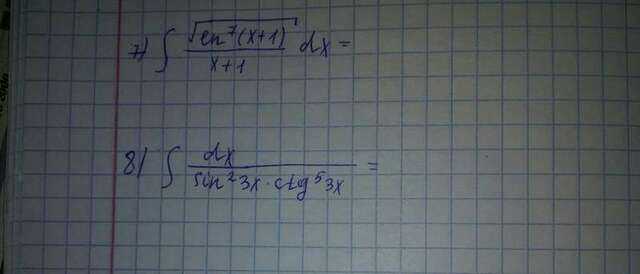 7) ∫ √(ln⁷(x+1)) / (x+1) dx =
8) ∫ dx / (sin² 3x · ctg⁵ 3x) =